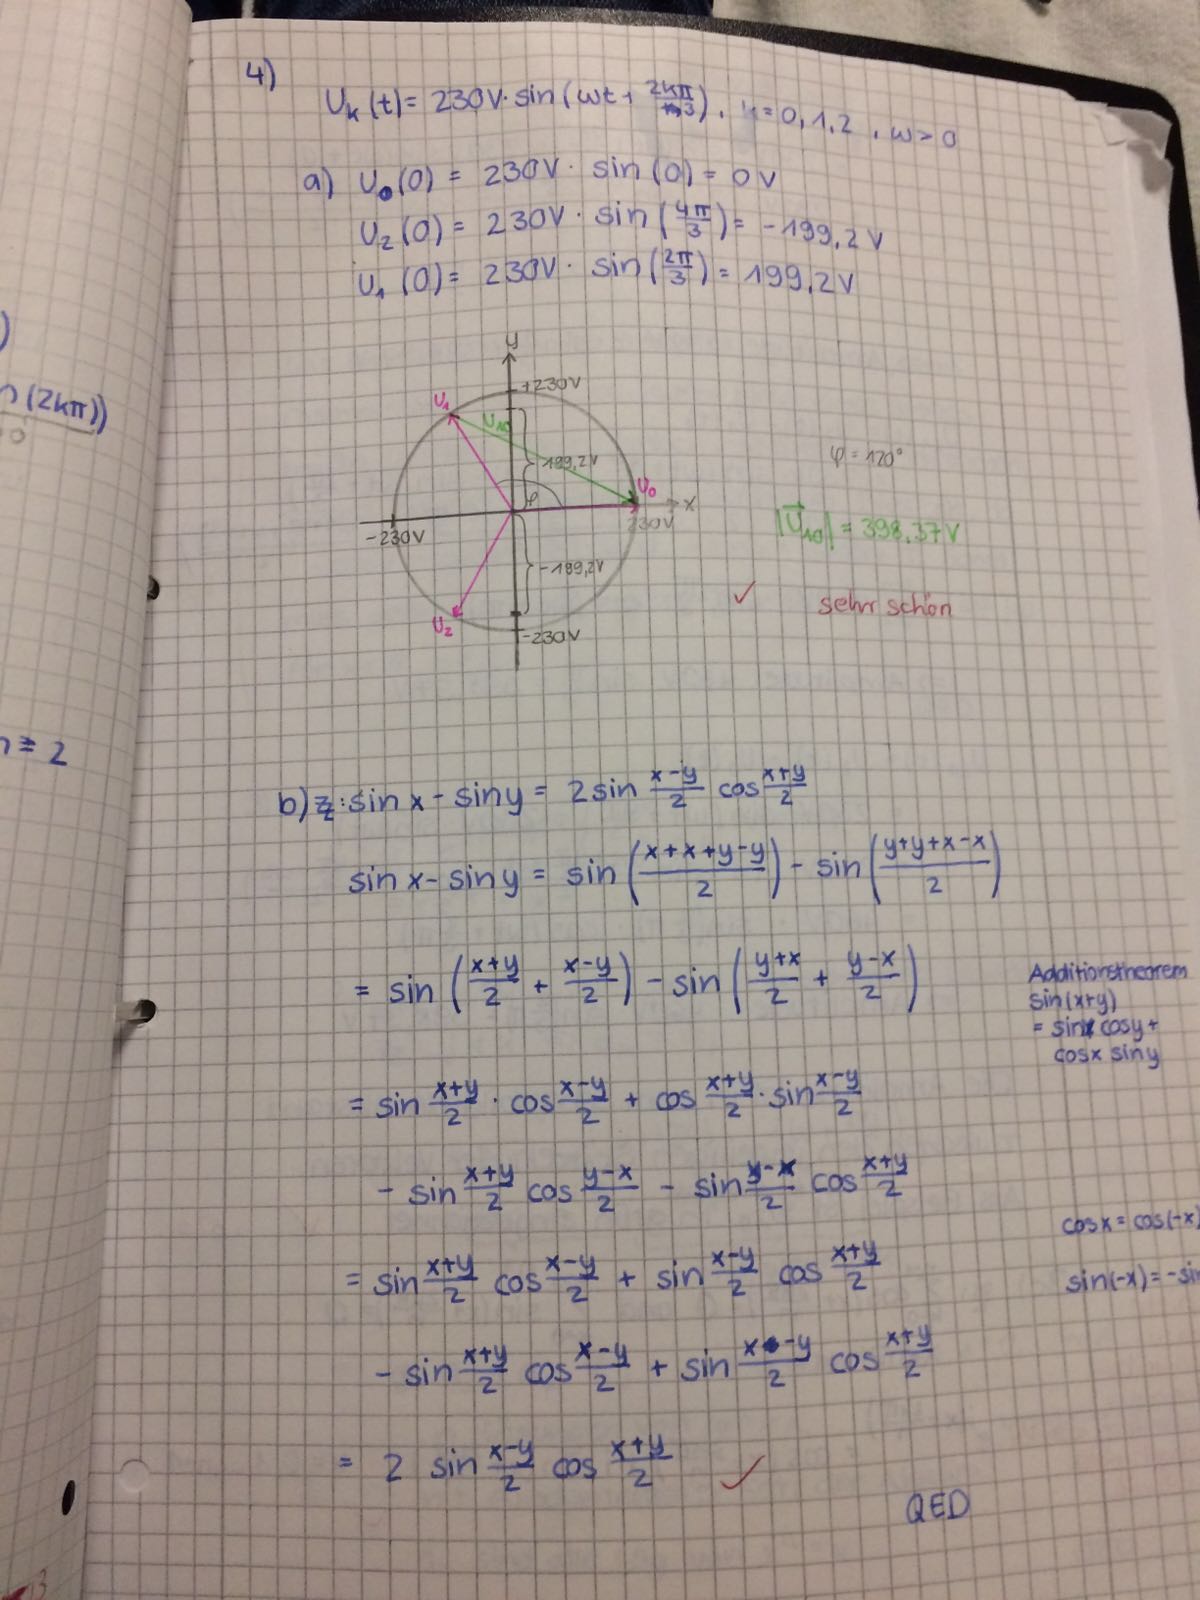 4)
U_k(t) = 230V · sin(ωt + 2kπ/3), k=0,1,2, ω>0
a) U_0(0) = 230V · sin(0) = 0V
U_2(0) = 230V · sin(4π/3) = -199,2V
U_1(0) = 230V · sin(2π/3) = 199,2V
n(2kπ))
0
y
+230V
U_1
U_10
199,2V
φ = 120°
φ
U_0
x
-230V
230V
|U⃗_10| = 398.37V
-199,2V
✓ sehr schön
U_2
-230V
n ≥ 2
b) z: sin x - sin y = 2 sin (x-y)/2 cos (x+y)/2
sin x - sin y = sin((x+x+y-y)/2) - sin((y+y+x-x)/2)
= sin((x+y)/2 + (x-y)/2) - sin((y+x)/2 + (y-x)/2)
Additionstheorem
sin(x+y)
= sinx cosy +
cosx siny
= sin (x+y)/2 · cos (x-y)/2 + cos (x+y)/2 · sin (x-y)/2
- sin (x+y)/2 cos (y-x)/2 - sin (y-x)/2 cos (x+y)/2
cosx = cos(-x)
= sin (x+y)/2 cos (x-y)/2 + sin (x-y)/2 cos (x+y)/2
sin(-x) = -sin
- sin (x+y)/2 cos (x-y)/2 + sin (x-y)/2 cos (x+y)/2
= 2 sin (x-y)/2 cos (x+y)/2 ✓
QED